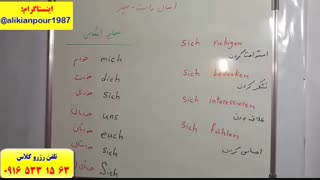 اینستاگرام:
@alikianpour1987
افعال
ضمایر انعکاسی
mich خودم
dich خودت
sich خودش
uns خودمان
euch خودتان
sich خودشان
Sich
sich
استراحت کردن
sich bedanken
تشکر کردن
sich interessieren
علاقه
sich fühlen
احساس کردن
تلفن رزرو کلاس
۰۹۱۶ ۵۳۳ ۱۵ ۶۳